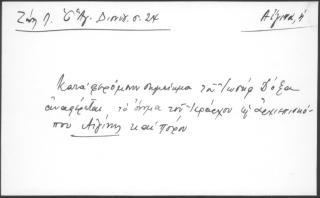 Ζώη Λ. Ὁ Ἅγ. Διονύσ. σ. 24
Αἴγινα, ἡ
Καταφερόμενον σημείωμα τοῦ Ἰωσήφ Δόξα
ἀναφέρεται τὸ ὄνομα τοῦ Ἱεράρχου ὡς ἀρχιεπισκό-
που Αἰγίνης καὶ Πόρου